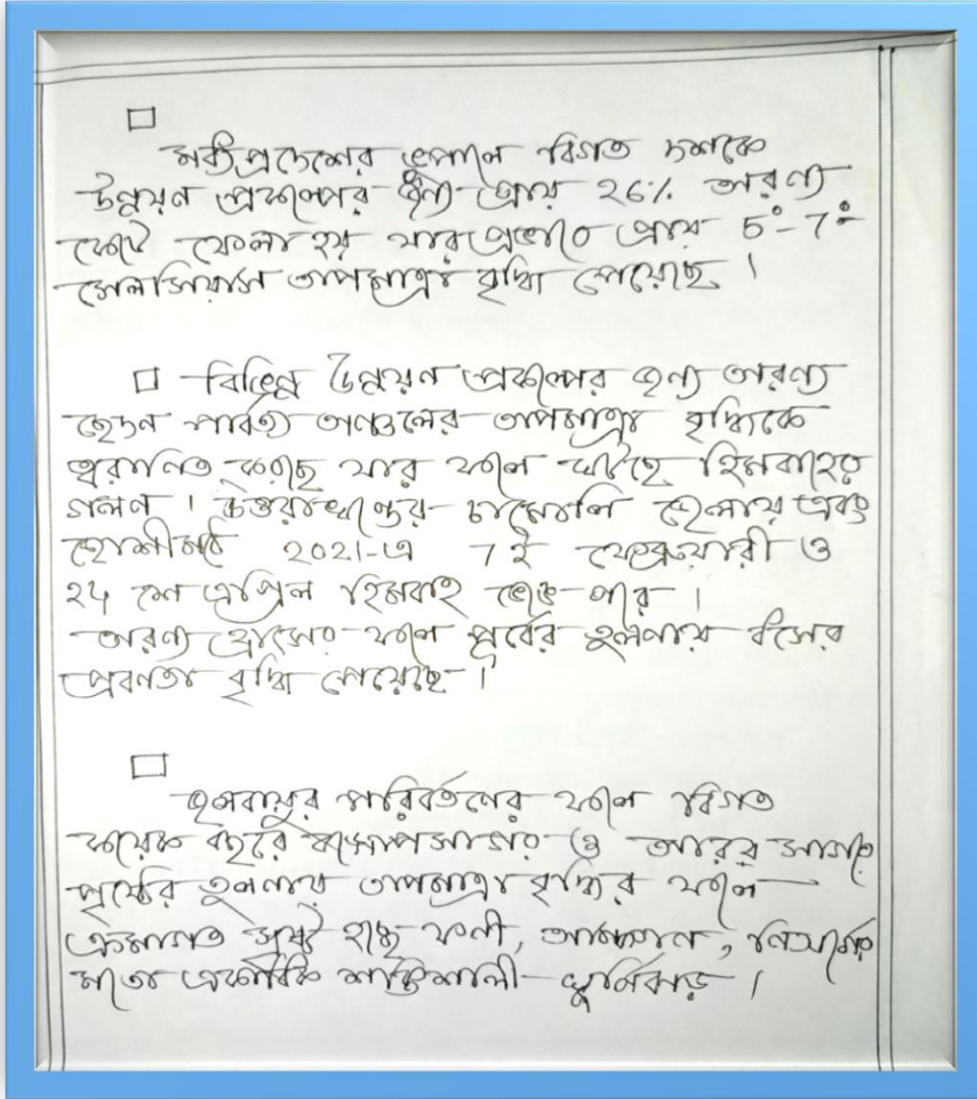 মধ্যপ্রদেশের ভূপালে বিগত দশকে
উন্নয়ন প্রকল্পের জন্য প্রায় ২6% অরণ্য
কেটে ফেলা হয় যার প্রভাবে প্রায় 5°-7°
সেলসিয়াস তাপমাত্রা বৃদ্ধি পেয়েছে।
বিভিন্ন উন্নয়ন প্রকল্পের জন্য অরণ্য
ছেদন পার্বত্য অঞ্চলের তাপমাত্রা বৃদ্ধিকে
ত্বরান্বিত করছে যার ফলে ঘটছে হিমবাহের
গলন। উত্তরাখণ্ডের চামোলি জেলায় এবং
যোশীমঠে ২০২1-এ 7ই ফেব্রুয়ারী ও
২4 শে এপ্রিল হিমবাহ ভেঙে পরে।
অরণ্য হ্রাসের ফলে পূর্বের তুলনায় ধসের
প্রবনতা বৃদ্ধি পেয়েছে।
জলবায়ুর পরিবর্তনের ফলে বিগত
কয়েক বছরে বঙ্গোপসাগর ও আরব সাগরে
পৃষ্ঠের তুলনায় তাপমাত্রা বৃদ্ধির ফলে
ক্রমাগত সৃষ্টি হচ্ছে ফনী, আমফান, নিসর্গের
মতো একাধিক শক্তিশালী ঘূর্ণিঝড়।